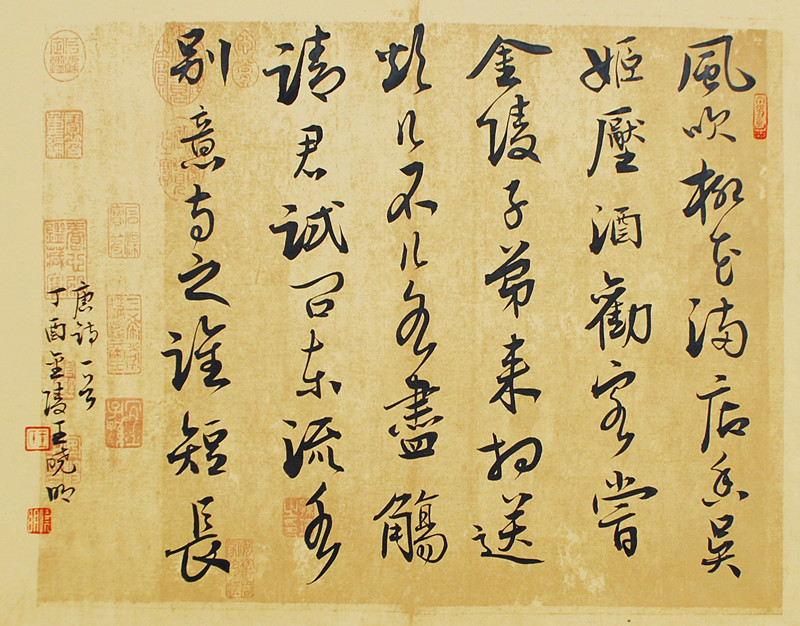 風吹柳花滿店香吳
姬壓酒勸客嘗
金陵子弟来相送
欲行不行各盡觴
請君試问东流水
别意与之誰短長
唐詩一首
丁酉金陵王曉明